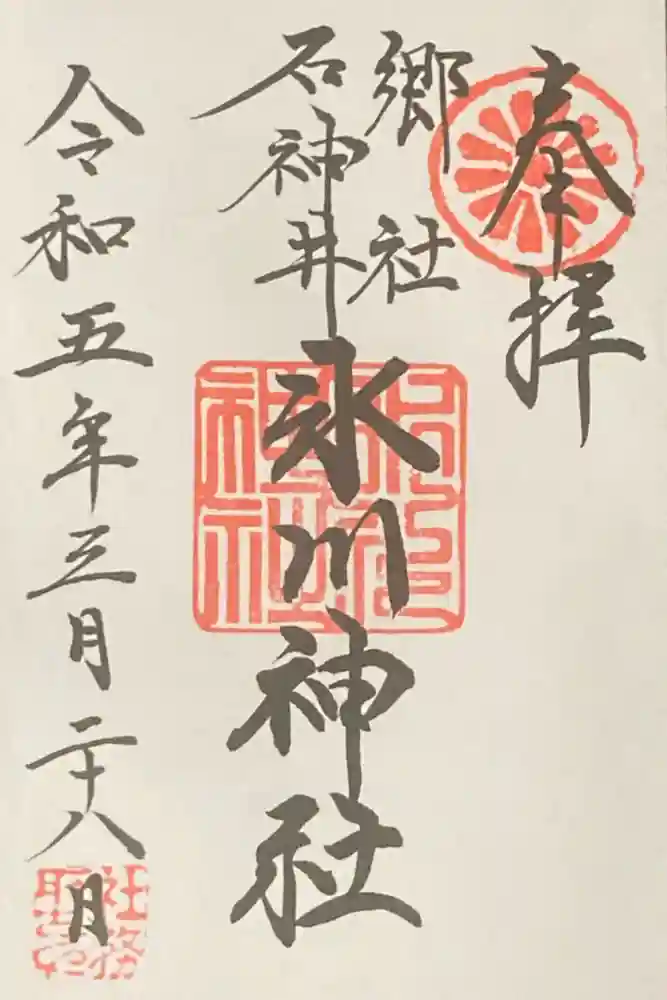 奉拝
郷社
石神井
氷川神社
令和五年三月二十八日
社務